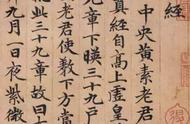 中央黄素老君
真經自高上虛皇
老君使教下方當
九章下暎三十九戶
此三十九章故曰
九月一日夜紫微